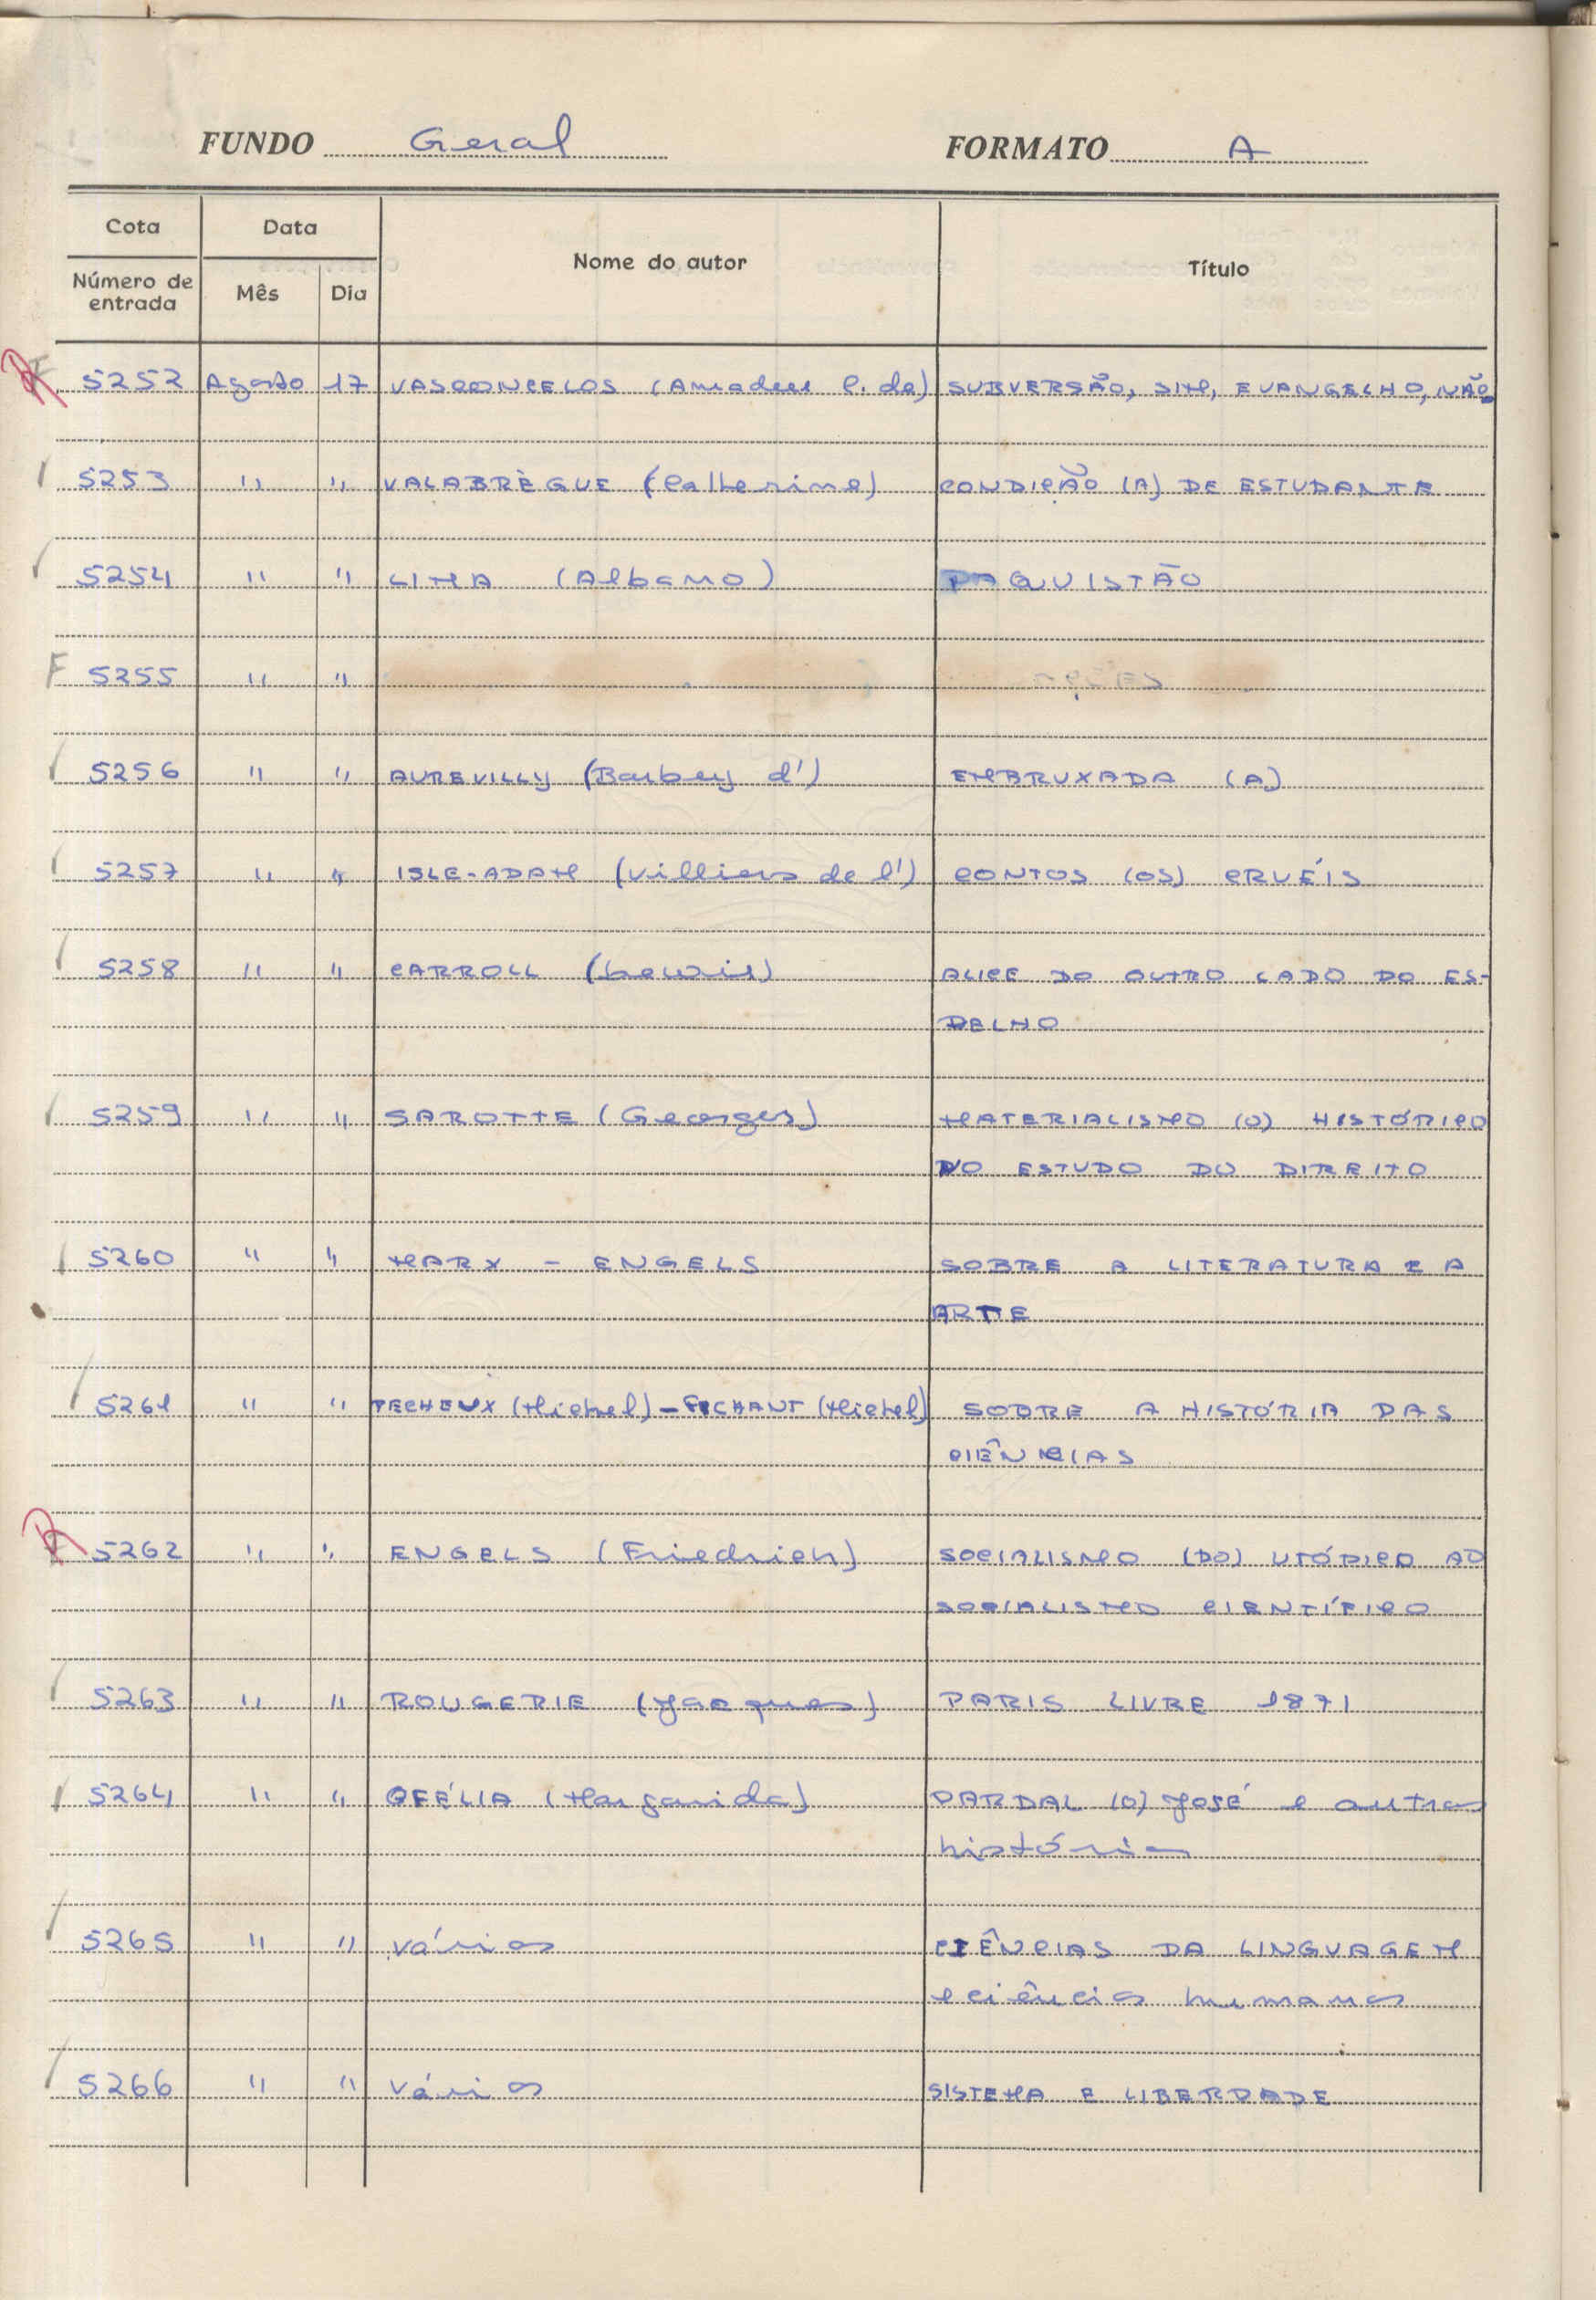 FUNDO Geral FORMATO A
Cota Data Nome do autor Título
Número de entrada Mês Dia
R 5252 Agosto 17 VASCONCELOS (Amadeu C. de) SUBVERSÃO, SIM, EVANGELHO, NÃO
5253 " " VALABRÈGUE (Catherine) CONDIÇÃO (A) DE ESTUDANTE
5254 " " LIMA (Albano) PAQUISTÃO
F 5255 " "
5256 " " AUREVILLY (Barbey d') EMBRUXADA (A)
5257 " " ISLE-ADAM (Villiers de l') CONTOS (OS) CRUÉIS
5258 " " CARROLL (Lewis) ALICE DO OUTRO LADO DO ES-
PELHO
5259 " " SAROTTE (Georges) MATERIALISMO (O) HISTÓRICO
NO ESTUDO DO DIREITO
5260 " " MARX - ENGELS SOBRE A LITERATURA E A
ARTE
5261 " " PECHEUX (Michel) - FICHANT (Michel) SOBRE A HISTÓRIA DAS
CIÊNCIAS
R 5262 " " ENGELS (Friedrich) SOCIALISMO (DO) UTÓPICO AO
SOCIALISMO CIENTÍFICO
5263 " " ROUGERIE (Jacques) PARIS LIVRE 1871
5264 " " OFÉLIA (Margarida) PARDAL (O) José e outras
histórias
5265 " " Vários CIÊNCIAS DA LINGUAGEM
e ciências humanas
5266 " " Vários SISTEMA E LIBERDADE